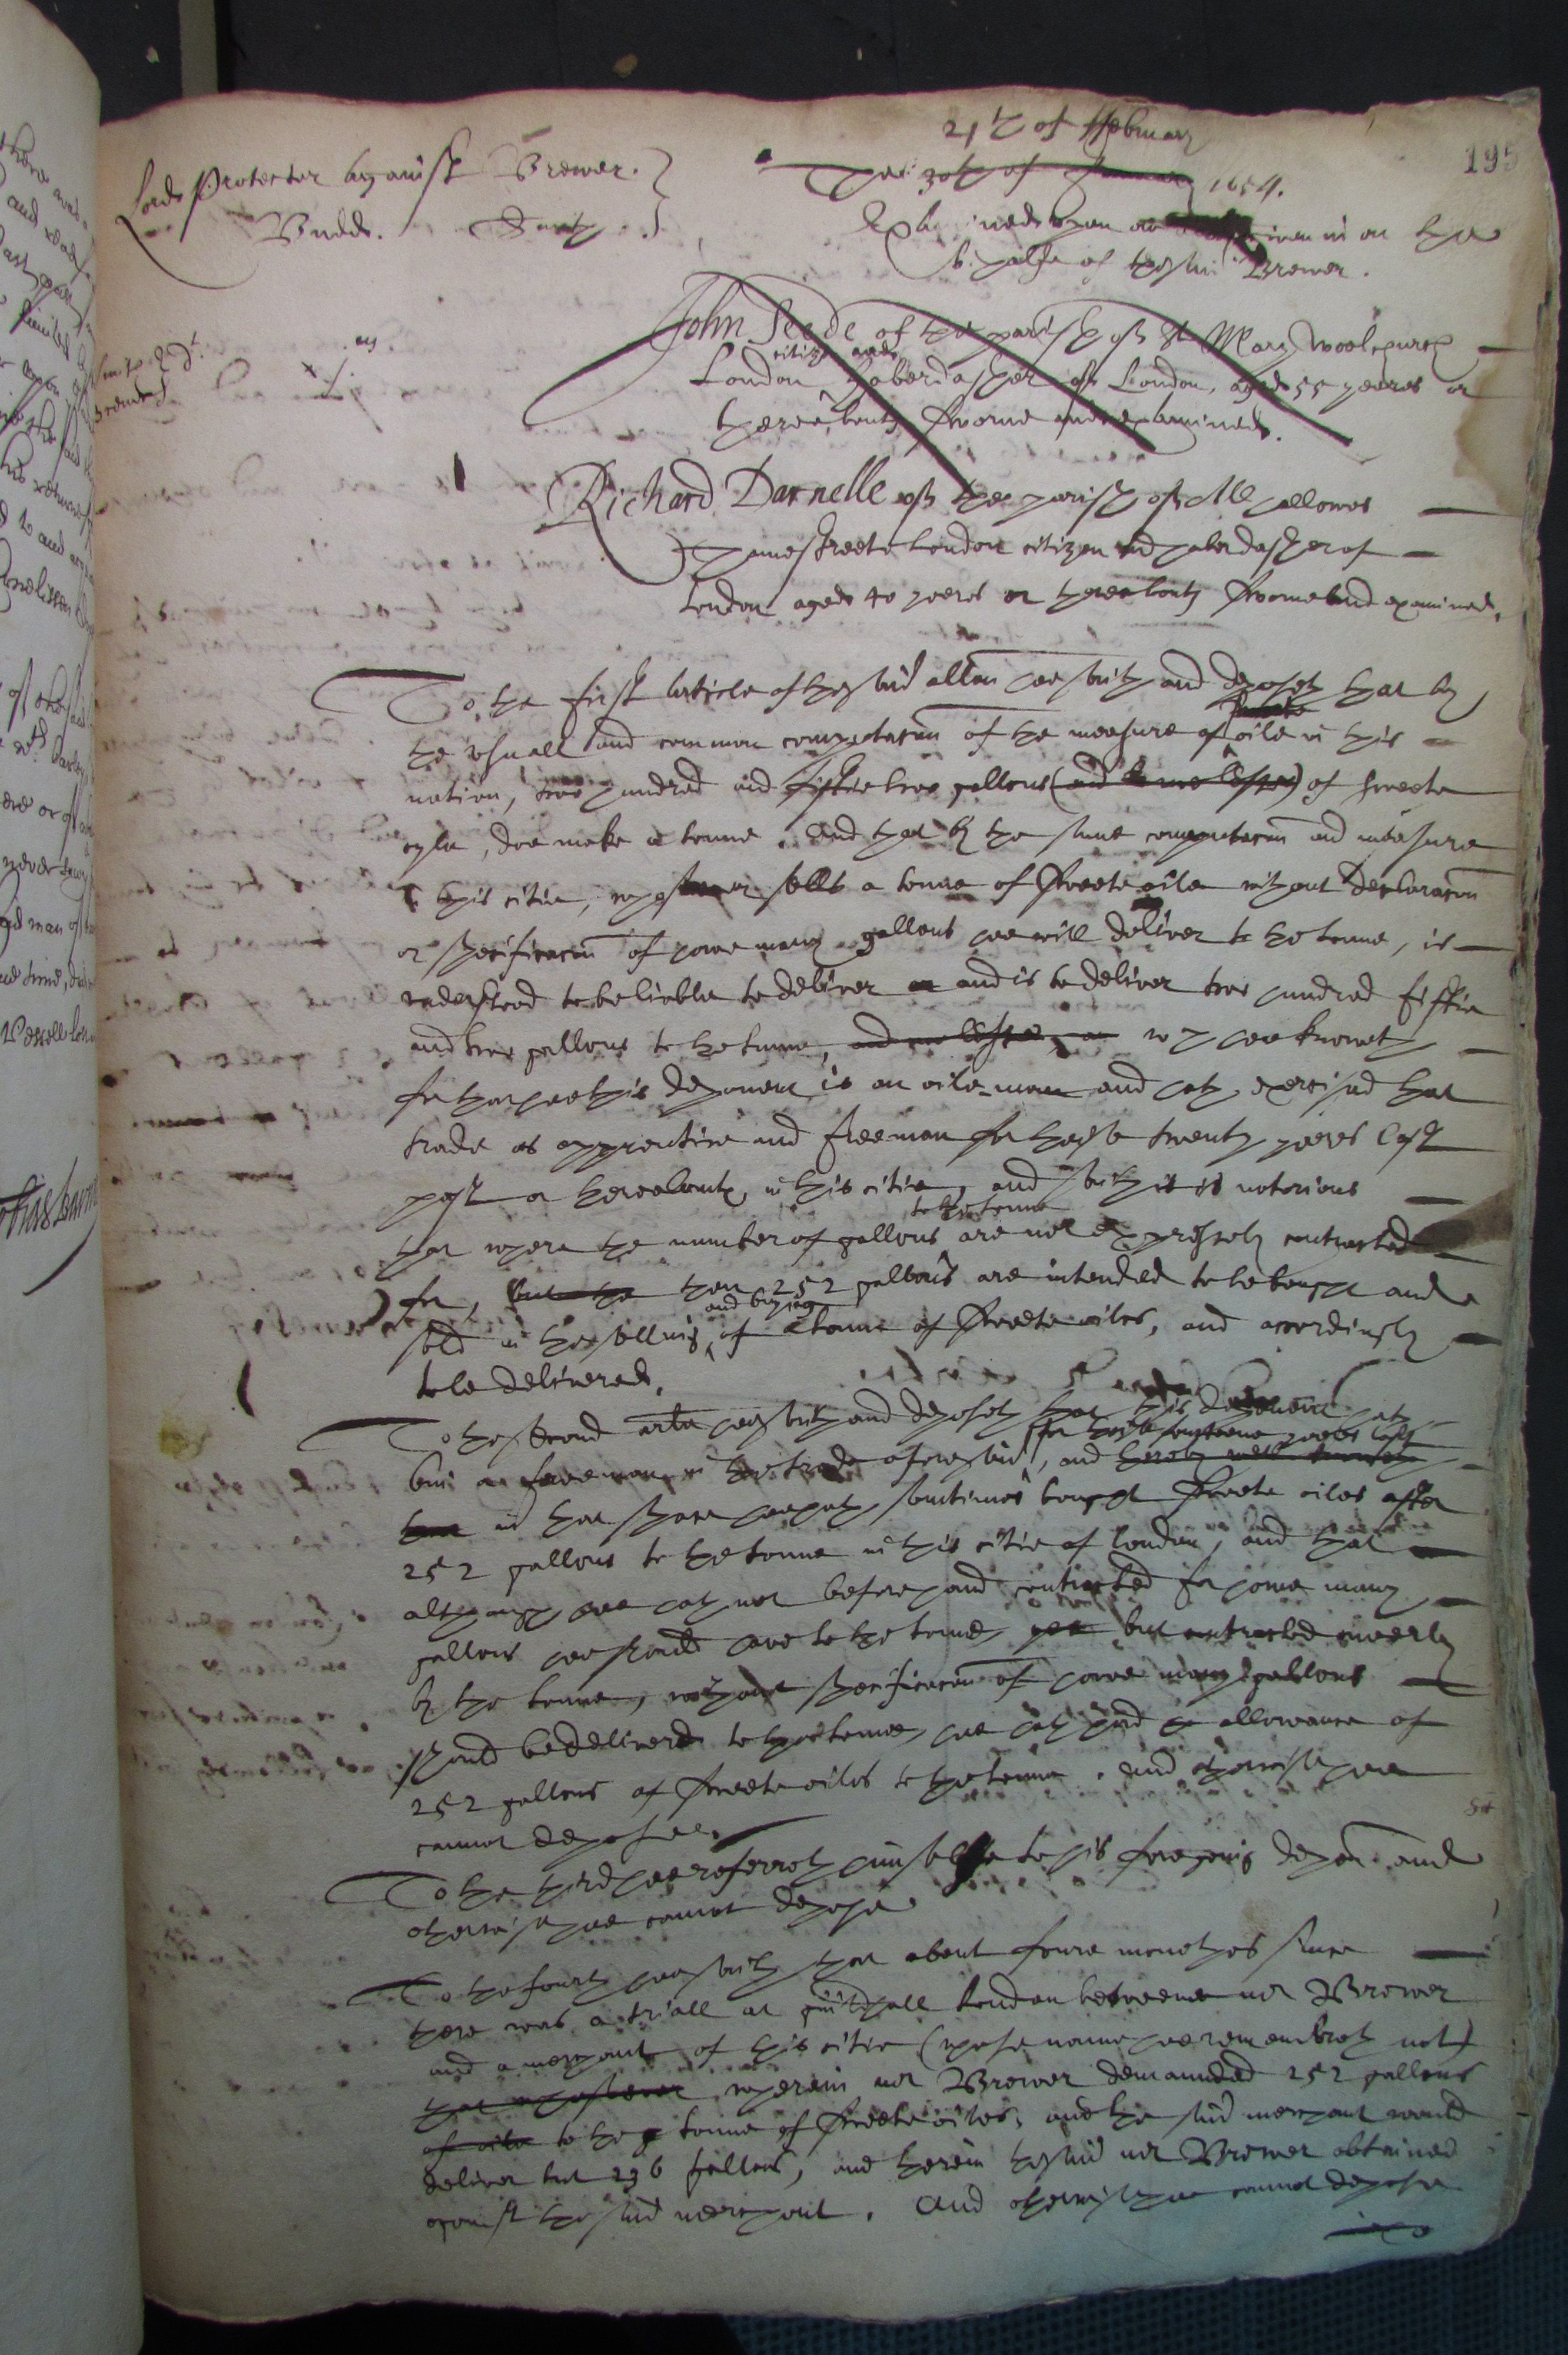 195
21th of ffebruary
The 30th of January 1654.
Lord Protector against Brewer.
Budd. Smith.
Examined upon an allegation on the
behalfe of the said Brewer.
John Seede of the parish of St Mary Woolchurch
London citizen and haberdasher of London, aged 55 yeares or
thereabouts sworne and examined.
Richard Darnelle of the parish of All hallowes
Thames streete London citizen and haberdasher of
London aged 40 yeeres or thereabouts sworne and examined.
To the first article of the said allon hee saith and deposeth that by
the usuall and common computacon of the measure of sweete oile in this
nation, two hundred and fiftie two gallons (and no lesse) of sweete
oyle, doe make a tonne. And that by the same computacon and measure
in this citie, whosoever sells a tonne of sweete oile without declaracon
or specificacon of howe many gallons hee will deliver to the tonne, is
understood to be lieble to deliver and is to deliver two hundred fiftie
and two gallons to the tonne, and no lesse, wch hee knoweth
for that hee this deponent is an oile-man and hath exercised that
trade as apprentice and freeman for theise twenty yeeres last
past or thereabouts, in this citie, and saith it is notorious
that where the number of gallons to the tonne are not expressely contracted
for, but the then 252 gallons are intended to be bought and
sold in the selling and buying of a tonne of sweete oiles, and accordingly
to be delivered.
To the second arle hee saith and deposeth that this deponent hath
bin a freeman in the trade aforesaid for theise fourteene yeeres last, and
in that space hee hath sometimes bought sweete oiles after
252 gallons to the tonne in this citie of london, and that
although hee hath not beforehand contracted for howe many
gallons hee should have to the tonne, yet but contracted meerly
by the tonne, without specificacon of howe many gallons
should be delivered to the tonne, hee hath had allowance of
252 gallons of sweete oiles to the tonne. And otherwise hee
cannot depose.
To the third hee referreth himselfe to his foregoing depon and
otherwise hee cannot depose
To the fourth hee saith that about foure monethes since
there was a triall at guildhall London betweene mr Brewer
and a merchant of this citie (whose name hee remembreth not)
that whosoever wherein mr Brewer demaunded 252 gallons
of oile to the tonne of sweete oiles, and the said merchant would
deliver but 236 gallons, and therein the said mr Brewer obtained
against the said merchant. And otherwise hee cannot depose